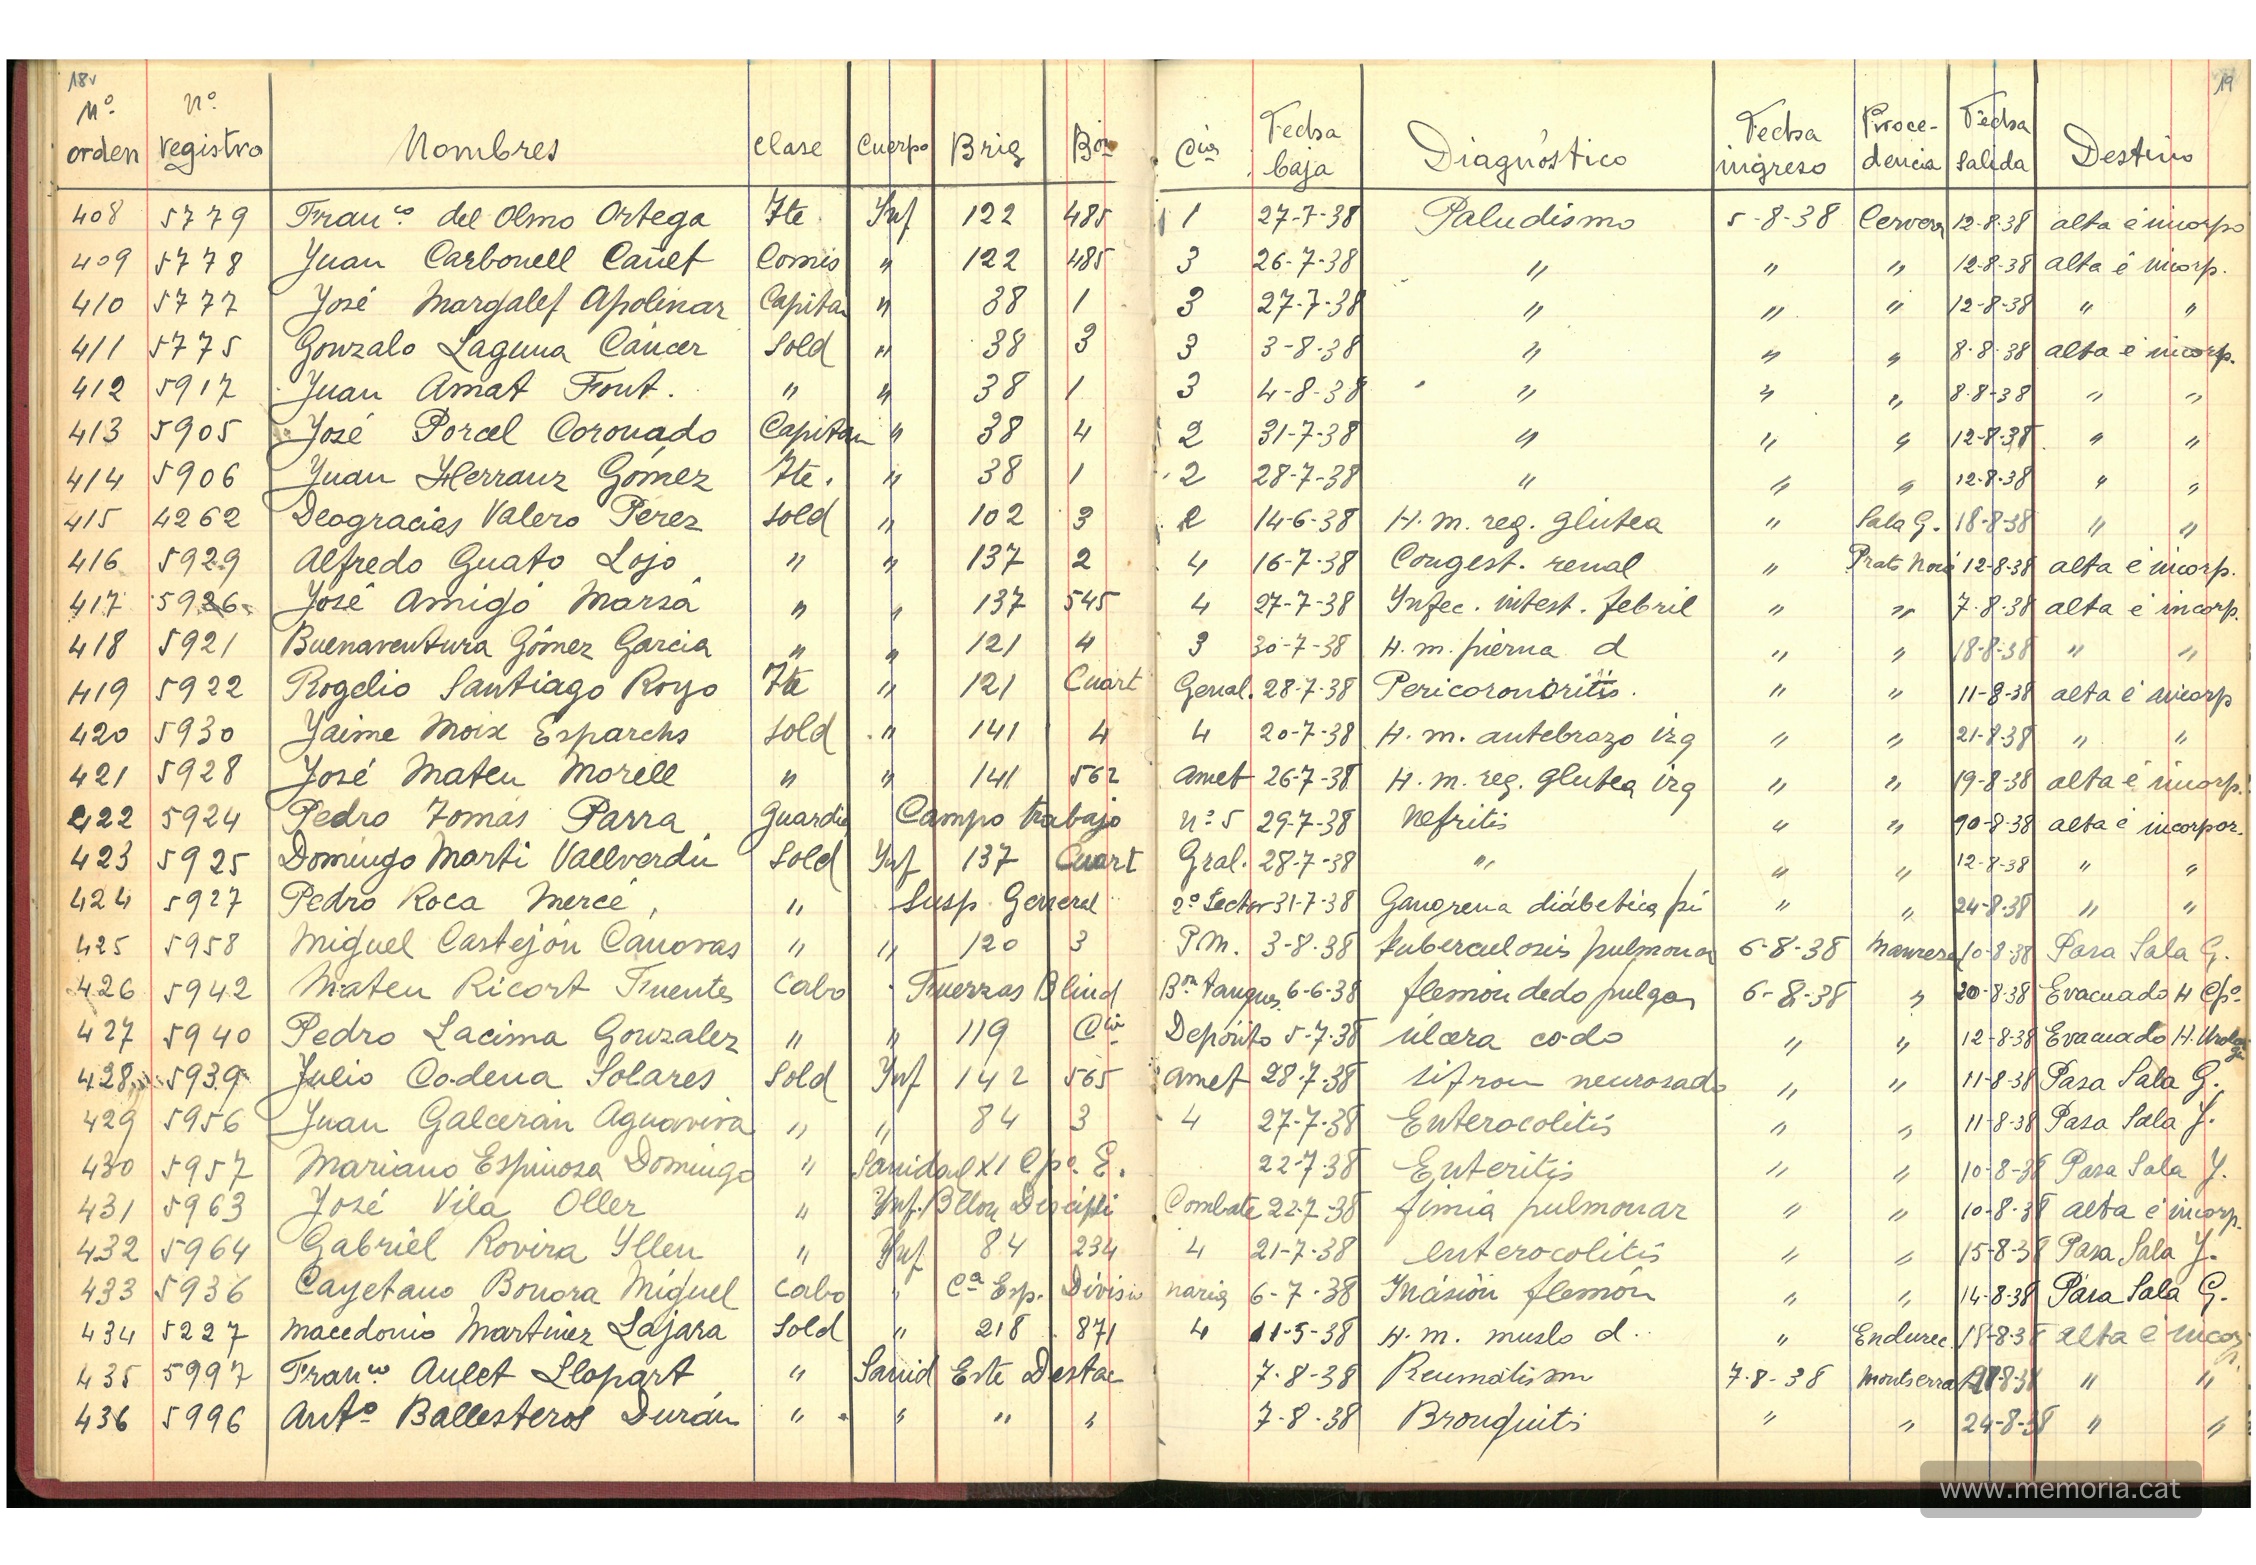 18v
19
Nº orden Nº registro Nombres Clase Cuerpo Brig Bón Cía Fecha baja Diagnóstico Fecha ingreso Procedencia Fecha Salida Destino
408 5779 Franco del Olmo Ortega Tte Inf 122 485 1 27-7-38 Paludismo 5-8-38 Cervera 12-8-38 alta é incorpo
409 5778 Juan Carbonell Cañet Comis " 122 485 3 26-7-38 " " " 12-8-38 alta é incorp.
410 5777 José Margalef Apolinar Capitan " 38 1 3 27-7-38 " " " 12-8-38 " "
411 5775 Gonzalo Laguna Cáncer Sold " 38 3 3 3-8-38 " " " 8-8-38 alta é incorp.
412 5917 Juan Amat Font. " " 38 1 3 4-8-38 " " " 8-8-38 " "
413 5905 José Porcel Coronado Capitan " 38 4 2 31-7-38 " " " 12-8-38 " "
414 5906 Juan Herranz Gómez Tte. " 38 1 2 28-7-38 " " " 12-8-38 " "
415 4262 Deogracias Valero Pérez Sold " 102 3 2 14-6-38 H. m. reg. glutea " Sala G. 18-8-38 " "
416 5929 Alfredo Guato Lojo " " 137 2 4 16-7-38 Congest. renal " Prats 12-8-38 alta é incorp.
417 5926 José Amigó Marsá " " 137 545 4 27-7-38 Infec. intest. febril " " 7-8-38 alta é incorp.
418 5921 Buenaventura Gómez Garcia " " 121 4 3 30-7-38 H. m. pierna d " " 18-8-38 " "
419 5922 Rogelio Santiago Royo Tte " 121 Cuart Genal. 28-7-38 Pericoronoritis. " " 11-8-38 alta é incorp
420 5930 Jaime Moix Esparchs Sold " 141 4 4 20-7-38 H. m. antebrazo izq " " 21-8-38 " "
421 5928 José Mateu Morell " " 141 562 Amet 26-7-38 H. m. reg. glutea izq " " 19-8-38 alta é incorp.
422 5924 Pedro Tomás Parra Guardia Campo trabajo nº 5 29-7-38 Nefritis " " -8-38 alta é incorpor.
423 5925 Domingo Marti Vallverdú Sold Inf 137 Cuart Gral. 28-7-38 " " " 12-8-38 " "
424 5927 Pedro Roca Mercé " Insp General 2º Sector 31-7-38 Gangrena diábetica pi " " 24-8-38 " "
425 5958 Miguel Castejón Cánovas " " 120 3 P.M. 3-8-38 tuberculosis pulmonar 6-8-38 Manresa 10-8-38 Pasa Sala G.
426 5942 Mateu Ricort Fuentes Cabo Fuerzas Blind Bón Tanques 6-6-38 flemón dedo pulgar 6-8-38 " 20-8-38 Evacuado H Cpº.
427 5940 Pedro Lacima Gonzalez " " 119 Cía Depósito 5-7-38 úlcera codo " " 12-8-38 Evacuado H.
428 5939 Julio Codena Solares Sold Inf 142 565 Amet 28-7-38 sifrom neurosado " " 11-8-38 Pasa Sala G.
429 5956 Juan Galcerán Aguaviva " " 84 3 4 27-7-38 Enterocolitis " " 11-8-38 Pasa Sala J.
430 5957 Mariano Espinosa Domingo " Sanidad XI Cpo. E. 22-7-38 Enteritis " " 10-8-38 Pasa Sala J.
431 5963 José Vila Oller " Inf. Bllon Discipli Combate 22-7-38 fimia pulmonar " " 10-8-38 alta é incorp.
432 5964 Gabriel Rovira Yllen " Inf 84 234 4 21-7-38 enterocolitis " " 15-8-38 Pasa Sala J.
433 5936 Cayetano Bonora Miguel Cabo " Cª Esp. Divisio naria 6-7-38 Incásión flemón " " 14-8-38 Pasa Sala G.
434 5227 Macedonio Martinez Lajara Sold " 218 871 4 11-5-38 H. m. muslo d. " Endurec. 18-8-38 alta é incorp.
435 5997 Franco Aulet Llopart " Sanid Este Destac 7-8-38 Reumátism 7-8-38 Montserrat " "
436 5996 Antº Ballesteros Durán " " " " 7-8-38 Bronquitis " " 24-8-38 " "
www.memoria.cat